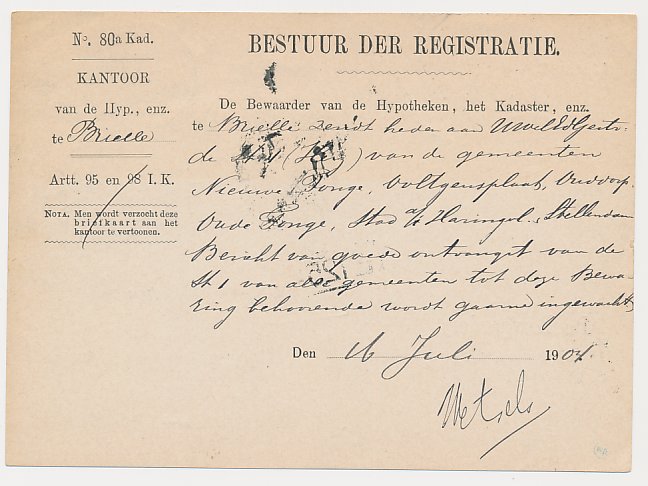 No. 80a Kad.
KANTOOR
van de Hyp., enz.
te Brielle
Artt. 95 en 98 I. K.
NOTA. Men wordt verzocht deze
briefkaart aan het
kantoor te vertoonen.
BESTUUR DER REGISTRATIE.
De Bewaarder van de Hypotheken, het Kadaster, enz.
te Brielle zendt heden aan UweldGestr.
de St 1 van de gemeenten
Nieuwe Tonge, Ooltgensplaat, Ouddorp
Oude Tonge, Stad a/h Haringvl., Stellendam
Bericht van goede ontvangst van de
St 1 van alle gemeenten tot deze Bewa-
ring behoorende wordt gaarne ingewacht
Den 16 Juli 1904.